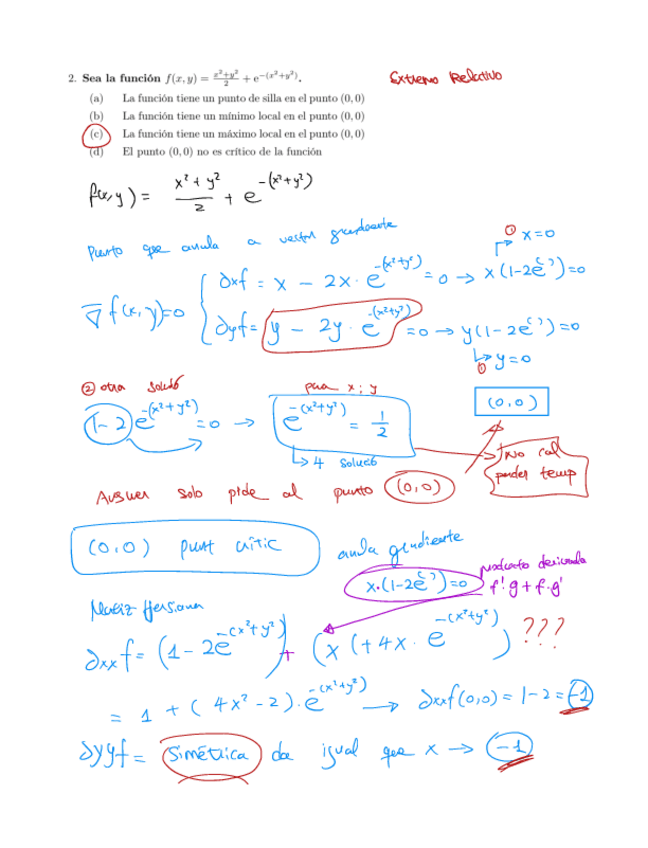 2. Sea la función f(x, y) = \frac{x²+y²}{2} + e^{-(x²+y²)}.
Extremo Relativo
(a) La función tiene un punto de silla en el punto (0, 0)
(b) La función tiene un mínimo local en el punto (0, 0)
(c) La función tiene un máximo local en el punto (0, 0)
(d) El punto (0, 0) no es crítico de la función
f(x,y) = \frac{x² + y²}{2} + e^{-(x²+y²)}
Punto que anula a vector gradiente
① x=0
∂xf = x - 2x · e^{-(x²+y²)} = 0 → x(1-2e^{( )})=0
∇f(x,y)=0
∂yf = y - 2y · e^{-(x²+y²)} = 0 → y(1-2e^{( )})=0
① y=0
② otra
para x i y
1-2e^{-(x²+y²)} = 0 → e^{-(x²+y²)} = \frac{1}{2}
(0,0)
↳ 4
No cal
perder temp
solo pide al punto (0,0)
(0,0) punt critic
anula gradiente
x·(1-2e^{( )})=0
producto derivada
f'·g + f·g'
Matriz Hessiana
∂xxf = (1-2e^{-(x²+y²)}) + (x(+4x·e^{-(x²+y²)}) ???
= 1 + (4x²-2)·e^{-(x²+y²)} → ∂xxf(0,0) = 1-2 = -1
∂yyf = Simétrica da igual que x → -1